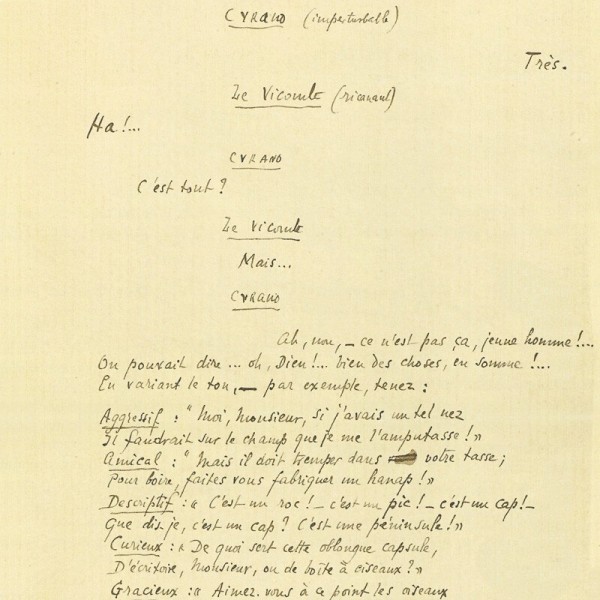 CYRANO (imperturbable)
Très.
Le Vicomte (ricanant)
Ha!...
CYRANO
C'est tout ?
Le Vicomte
Mais...
CYRANO
Ah, non, — ce n'est pas ça, jeune homme !...
On pouvait dire ... oh, Dieu !... bien des choses, en somme !...
En variant le ton, — par exemple, tenez :
Aggressif : " Moi, Monsieur, si j'avais un tel nez
Il faudrait sur le champ que je me l'amputasse ! »
Amical : " Mais il doit tremper dans votre tasse ;
Pour boire, faites vous fabriquer un hanap ! »
Descriptif : « C'est un roc ! — c'est un pic ! — c'est un cap ! —
Que dis-je, c'est un cap ? C'est une péninsule ! »
Curieux : « De quoi sert cette oblongue capsule,
D'écritoire, Monsieur, ou de boîte à ciseaux ? »
Gracieux : « Aimez-vous à ce point les oiseaux